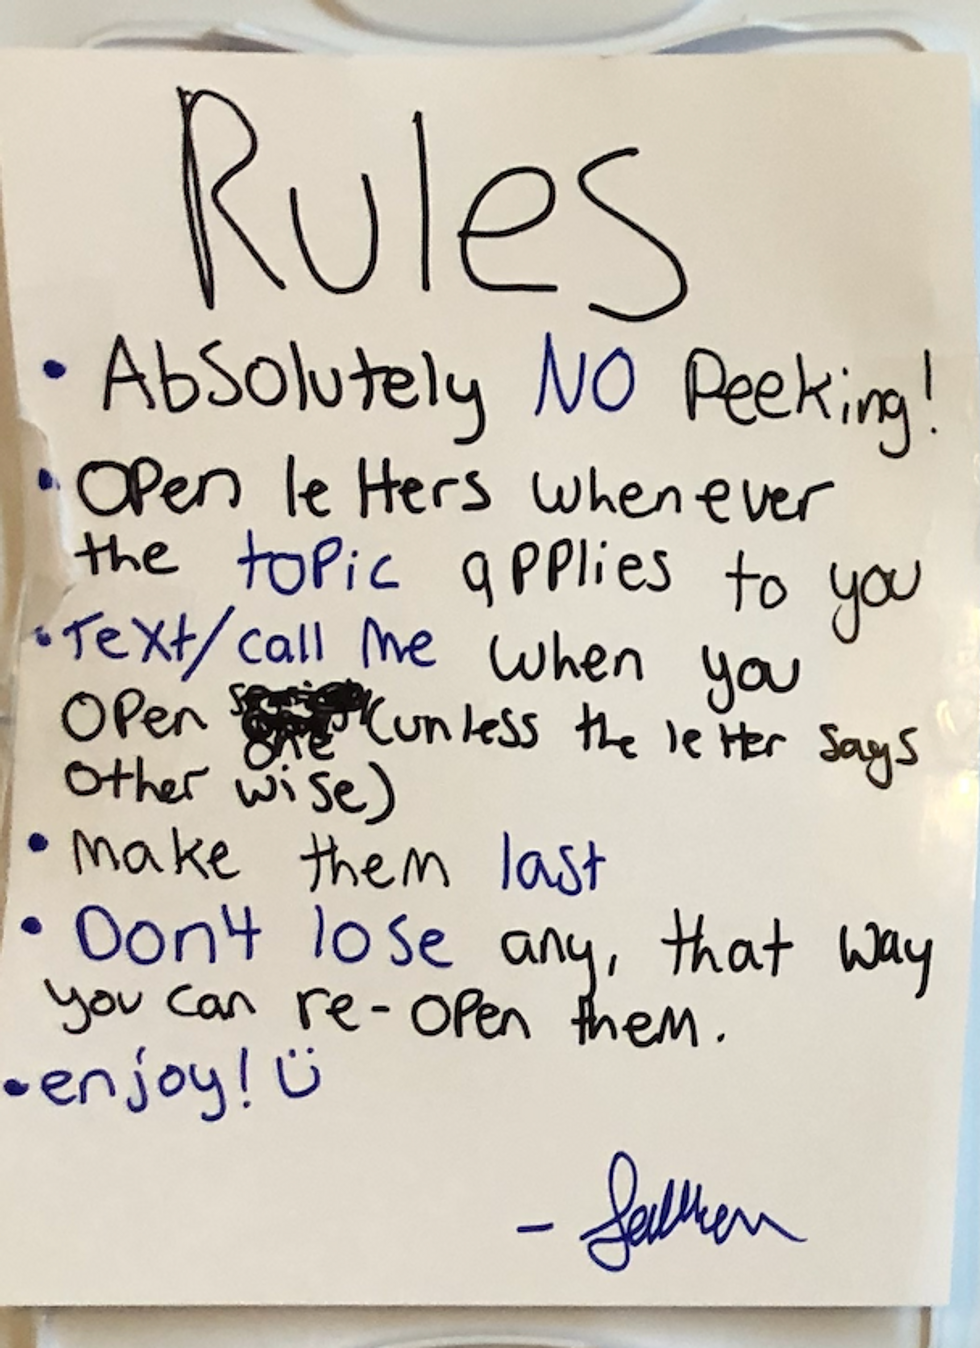 Rules
• Absolutely NO Peeking!
• Open letters whenever
the topic applies to you
• Text/call me when you
Open one (unless the letter says
other wise)
• Make them last
• Don't lose any, that way
you can re-open them.
• enjoy! ü
–